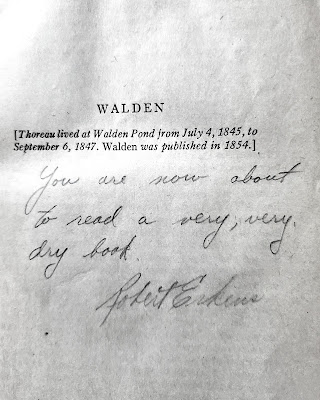 WALDEN
[Thoreau lived at Walden Pond from July 4, 1845, to
September 6, 1847. Walden was published in 1854.]
You are now about
to read a very, very,
dry book.
Robert